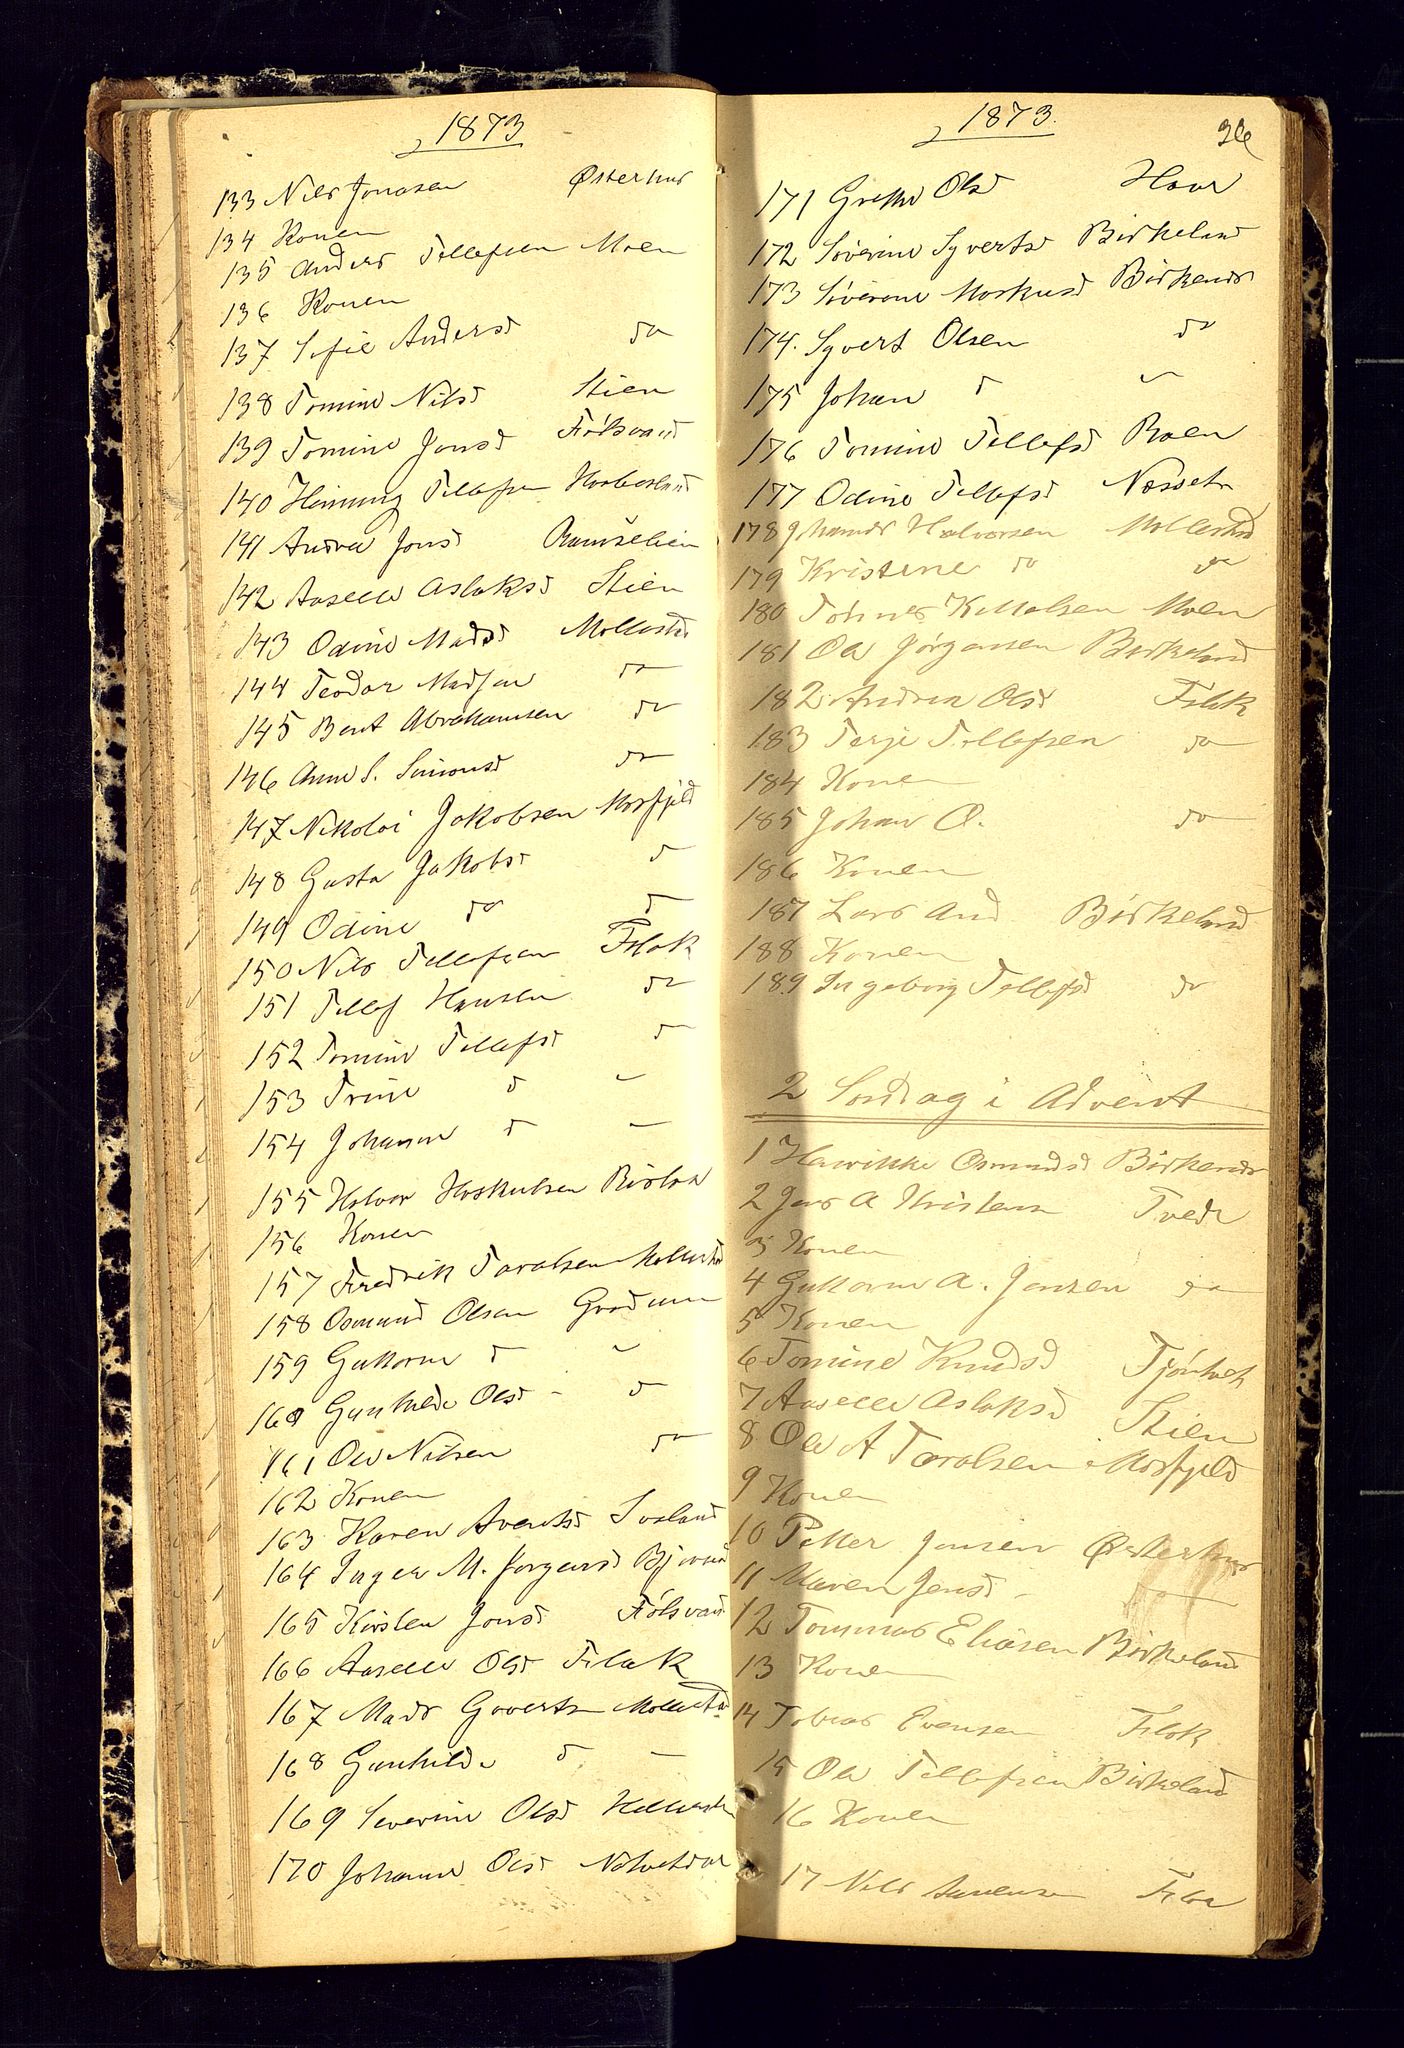 1873
133 Nils Jonasen Østerhus
134 Konen
135 Anders Tellefsen Moen
136 Konen
137 Sofie Andersd do
138 Tomine Nilsd Stien
139 Tomine Jonsd Fiölsvand
140 Henning Tellefsen
141 Andrea Jonsd Ramselien
142 Aaselle Aslaksd Stien
143 Odine Madsd Mollestad
144 Teodor Madsen do
145 Bent Abrahamsen do
146 Anne S. Simonsd do
147 Nikolai Jakobsen Mosfjeld
148 Gusta Jakobsd d
149 Odine do d
150 Nils Tellefsen Flak
151 Tellef Hansen do
152 Tomine Tellefsd d
153 Trine d –
154 Johanne d –
155 Halvor
156 Konen
157 Fredrik Taralsen Mollestad
158 Osmund Olsen
159 Guttorm d –
160 Gunhilde Olsd – d
161 Ole Nilsen do
162 Konen
163 Karen
164 Inger M. Jørgensd
165 Kirsten Jonsd Fiölsvand
166 Aaselle Olsd Flak
167 Mads Govertsen Mollestad
168 Gunhilde d –
169 Severine Olsd
170 Johanne Olsd
1873. 36
171 Grethe Olsd Haar
172 Söverine Syvertsd Birkeland
173 Söverene Markusd Birkenes
174. Syvert Olsen do
175 Johan d –
176 Tomine Tellefsd Roen
177 Odine Tellefsd Næsset
178 Halvorsen Mollestad
179 Kristine do do
180 Kittelsen Moen
181 Ole Jørgensen Birkeland
182 Andrea Olsd Flak
183 Terje Tellefsen do
184 Konen
185 Johan O. do
186 Konen
187 Lars And Birkeland
188 Konen
189 Ingeborg Tellefsd do
2 Søndag i Advent
1 Henrikke Osmundsd Birkenes
2 Jens A Kristensen Tvede
3 Konen
4 Guttorm A. Jensen do
5 Konen
6 Tomine Knudsd
7 Aaselle Aslaksd Stien
8 Ole A Taralsen Mosfjeld
9 Konen
10 Petter Jensen Østerhus
11 Maren Jensd – do
12 Tommas Eliasen Birkeland
13 Konen
14 Tobias Evensen Flak
15 Ole Tellefsen Birkeland
16 Konen
17 Nils